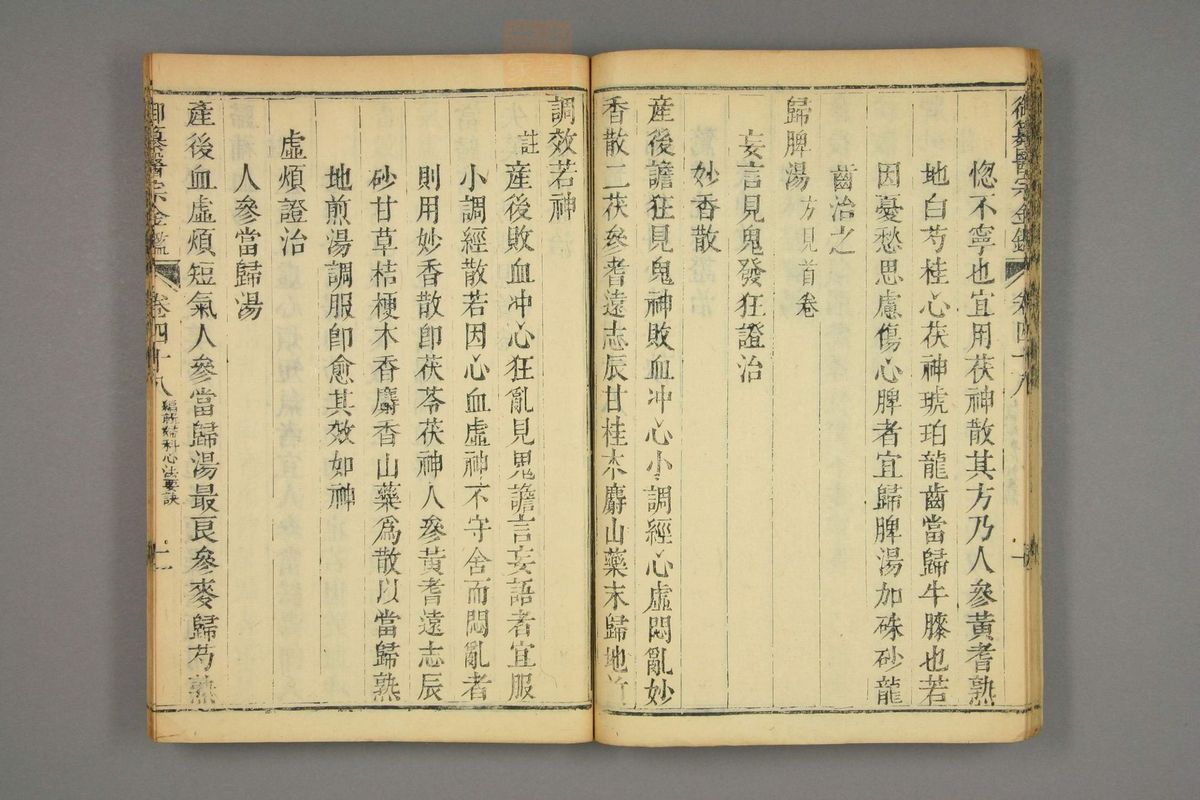 御纂醫宗金鑑 卷四十八 十
惚不寧也宜用茯神散其方乃人參黃耆熟
地白芍桂心茯神琥珀龍齒當歸牛膝也若
因憂愁思慮傷心脾者宜歸脾湯加硃砂龍
齒治之
歸脾湯方見首卷
妄言見鬼發狂證治
妙香散
產後譫狂見鬼神敗血冲心小調經心虛悶亂妙
香散二茯參耆遠志辰甘桂木麝山藥末歸地煎
調效若神
註產後敗血冲心狂亂見鬼譫言妄語者宜服
小調經散若因心血虛神不守舍而悶亂者
則用妙香散卽茯苓茯神人參黃耆遠志辰
砂甘草桔梗木香麝香山藥爲散以當歸熟
地煎湯調服卽愈其效如神
虛煩證治
人參當歸湯
產後血虛煩短氣人參當歸湯最良參麥歸芍熟
御纂醫宗金鑑 卷四十八 編輯婦科心法要訣 十一